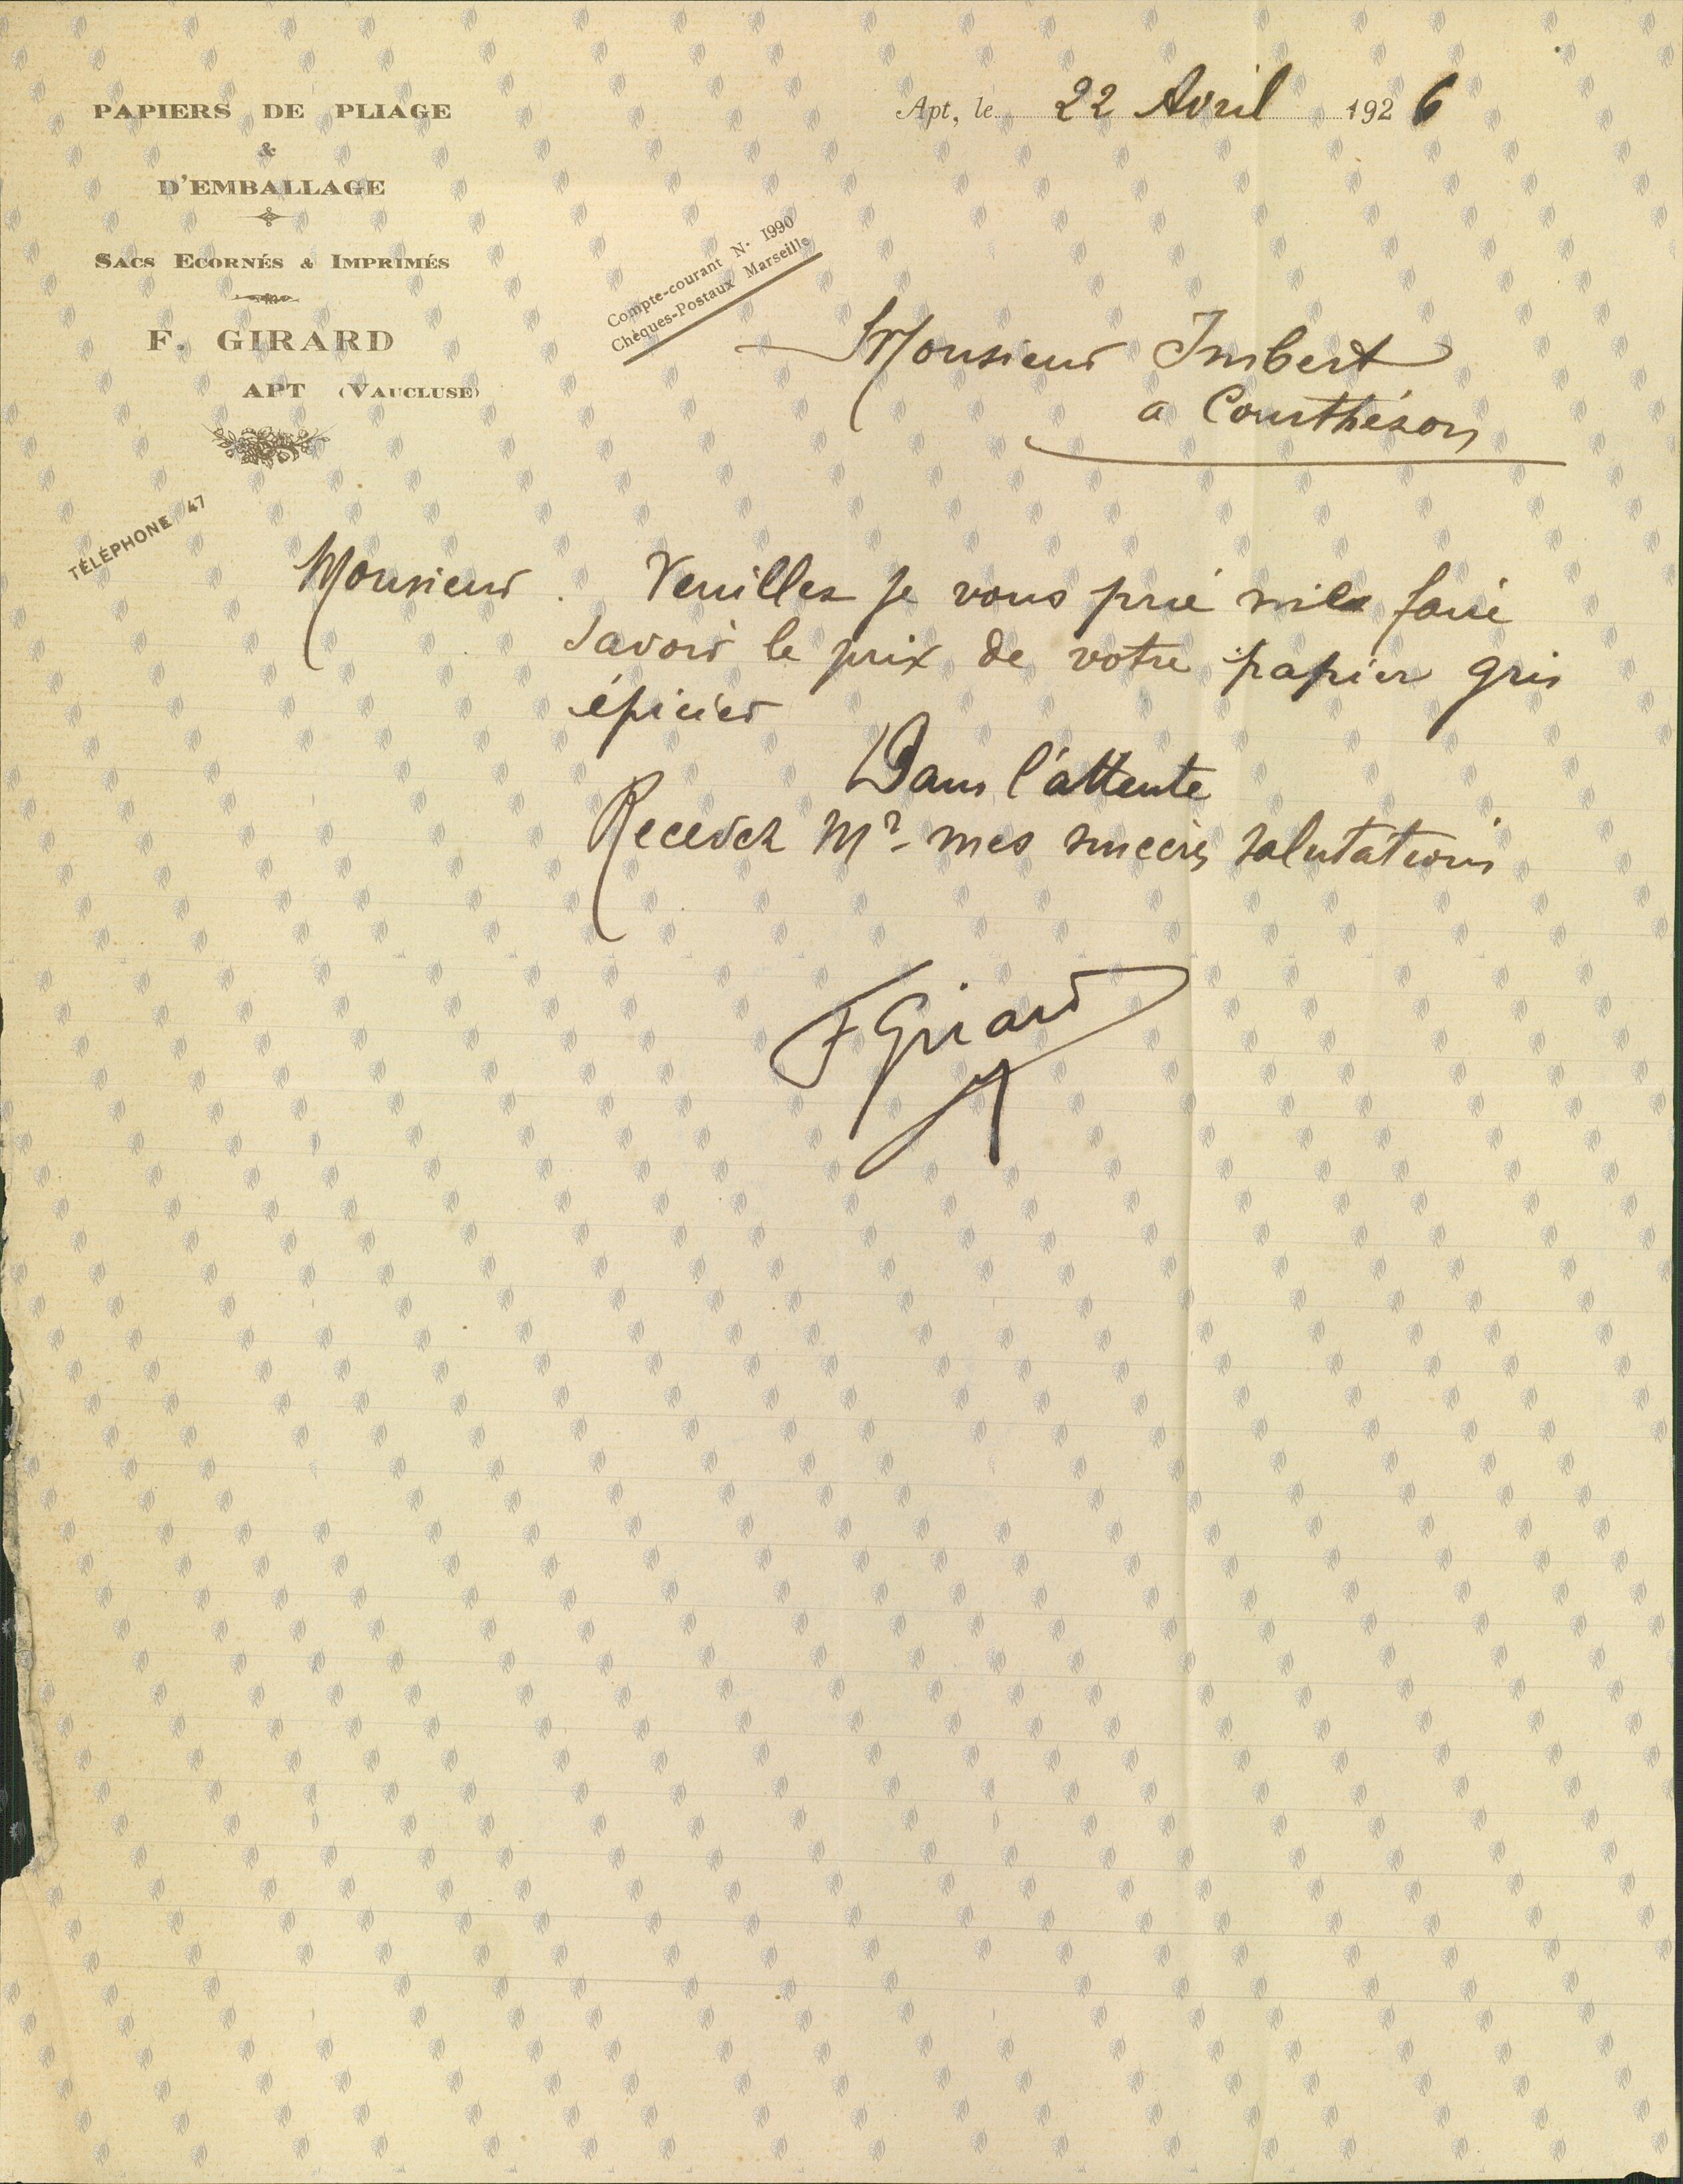 PAPIERS DE PLIAGE
&
D'EMBALLAGE
SACS ECORNÉS & IMPRIMÉS
F. GIRARD
APT (VAUCLUSE)
TÉLÉPHONE 47
Apt, le 22 Avril 1926
Compte-courant N. 1990
Chèques-Postaux Marseille
Monsieur Imbert
a Courthézon
Monsieur. Veuillez je vous prié faire
savoir le prix de votre papier gris
épicier
Dans l'attente
Recevez Mr. mes sincères salutations
F Girard